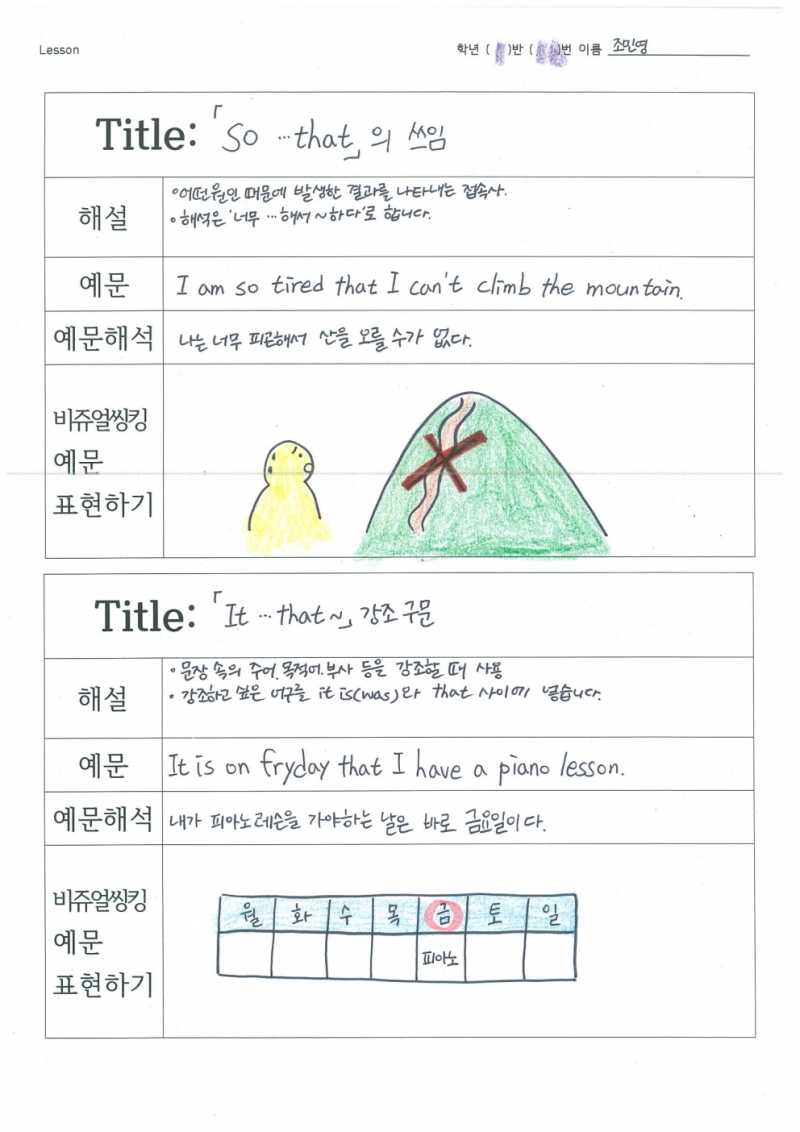 Lesson
학년 ( )반 ( )번 이름 조민영
Title: 「So …that」의 쓰임
해설
•어떤원인 때문에 발생한 결과를 나타내는 접속사.
•해석은 '너무 …해서 ~하다'로 합니다.
예문
I am so tired that I can't climb the mountain.
예문해석
나는 너무 피곤해서 산을 오를 수가 없다.
비쥬얼씽킹
예문
표현하기
Title: 「It …that ~」 강조 구문
해설
•문장 속의 주어, 목적어, 부사 등을 강조할 때 사용
•강조하고 싶은 어구를 it is(was)와 that 사이에 넣습니다.
예문
It is on fryday that I have a piano lesson.
예문해석
내가 피아노레슨을 가야하는 날은 바로 금요일이다.
비쥬얼씽킹
예문
표현하기
월 화 수 목 금 토 일
피아노